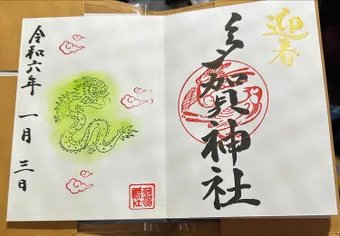 迎春
多加賀神社
令和六年
一月三日